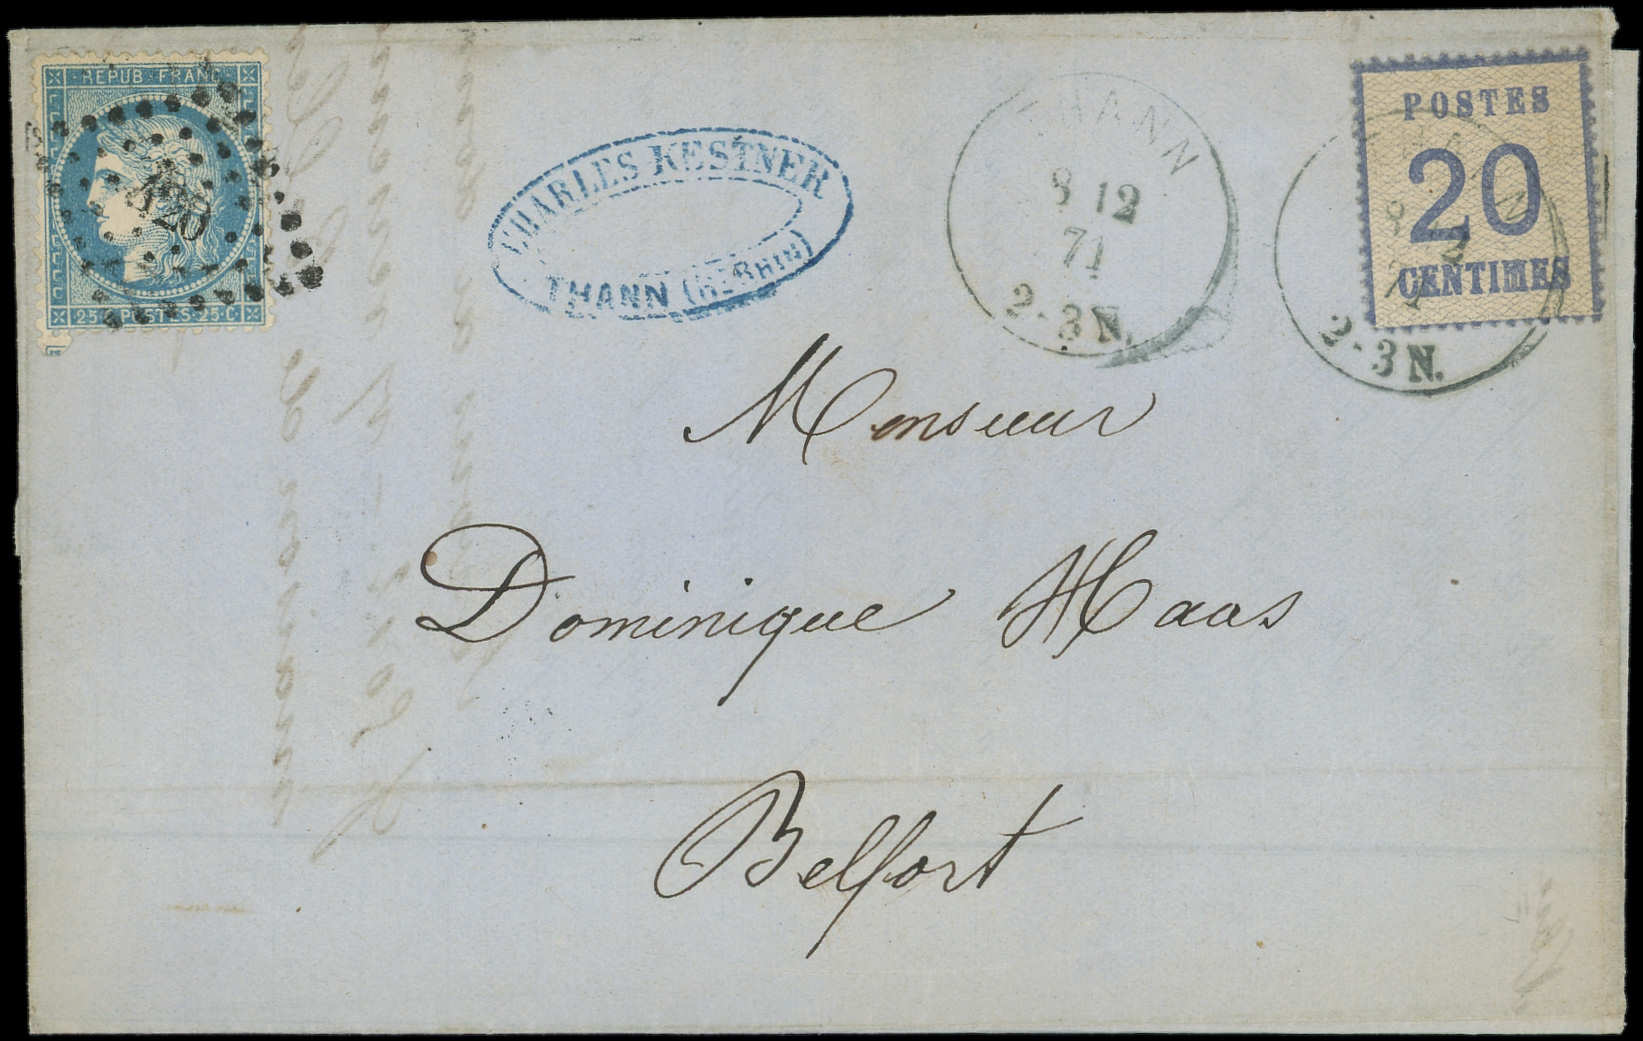 REPUB·FRANC
420
25 POSTES 25·C
CHARLES KESTNER
THANN (Ht. RHIN)
THANN
8 12
71
2-3 N.
POSTES
20
CENTIMES
THANN
8 2
71
2-3 N.
Monsieur
Dominique Haas
Belfort